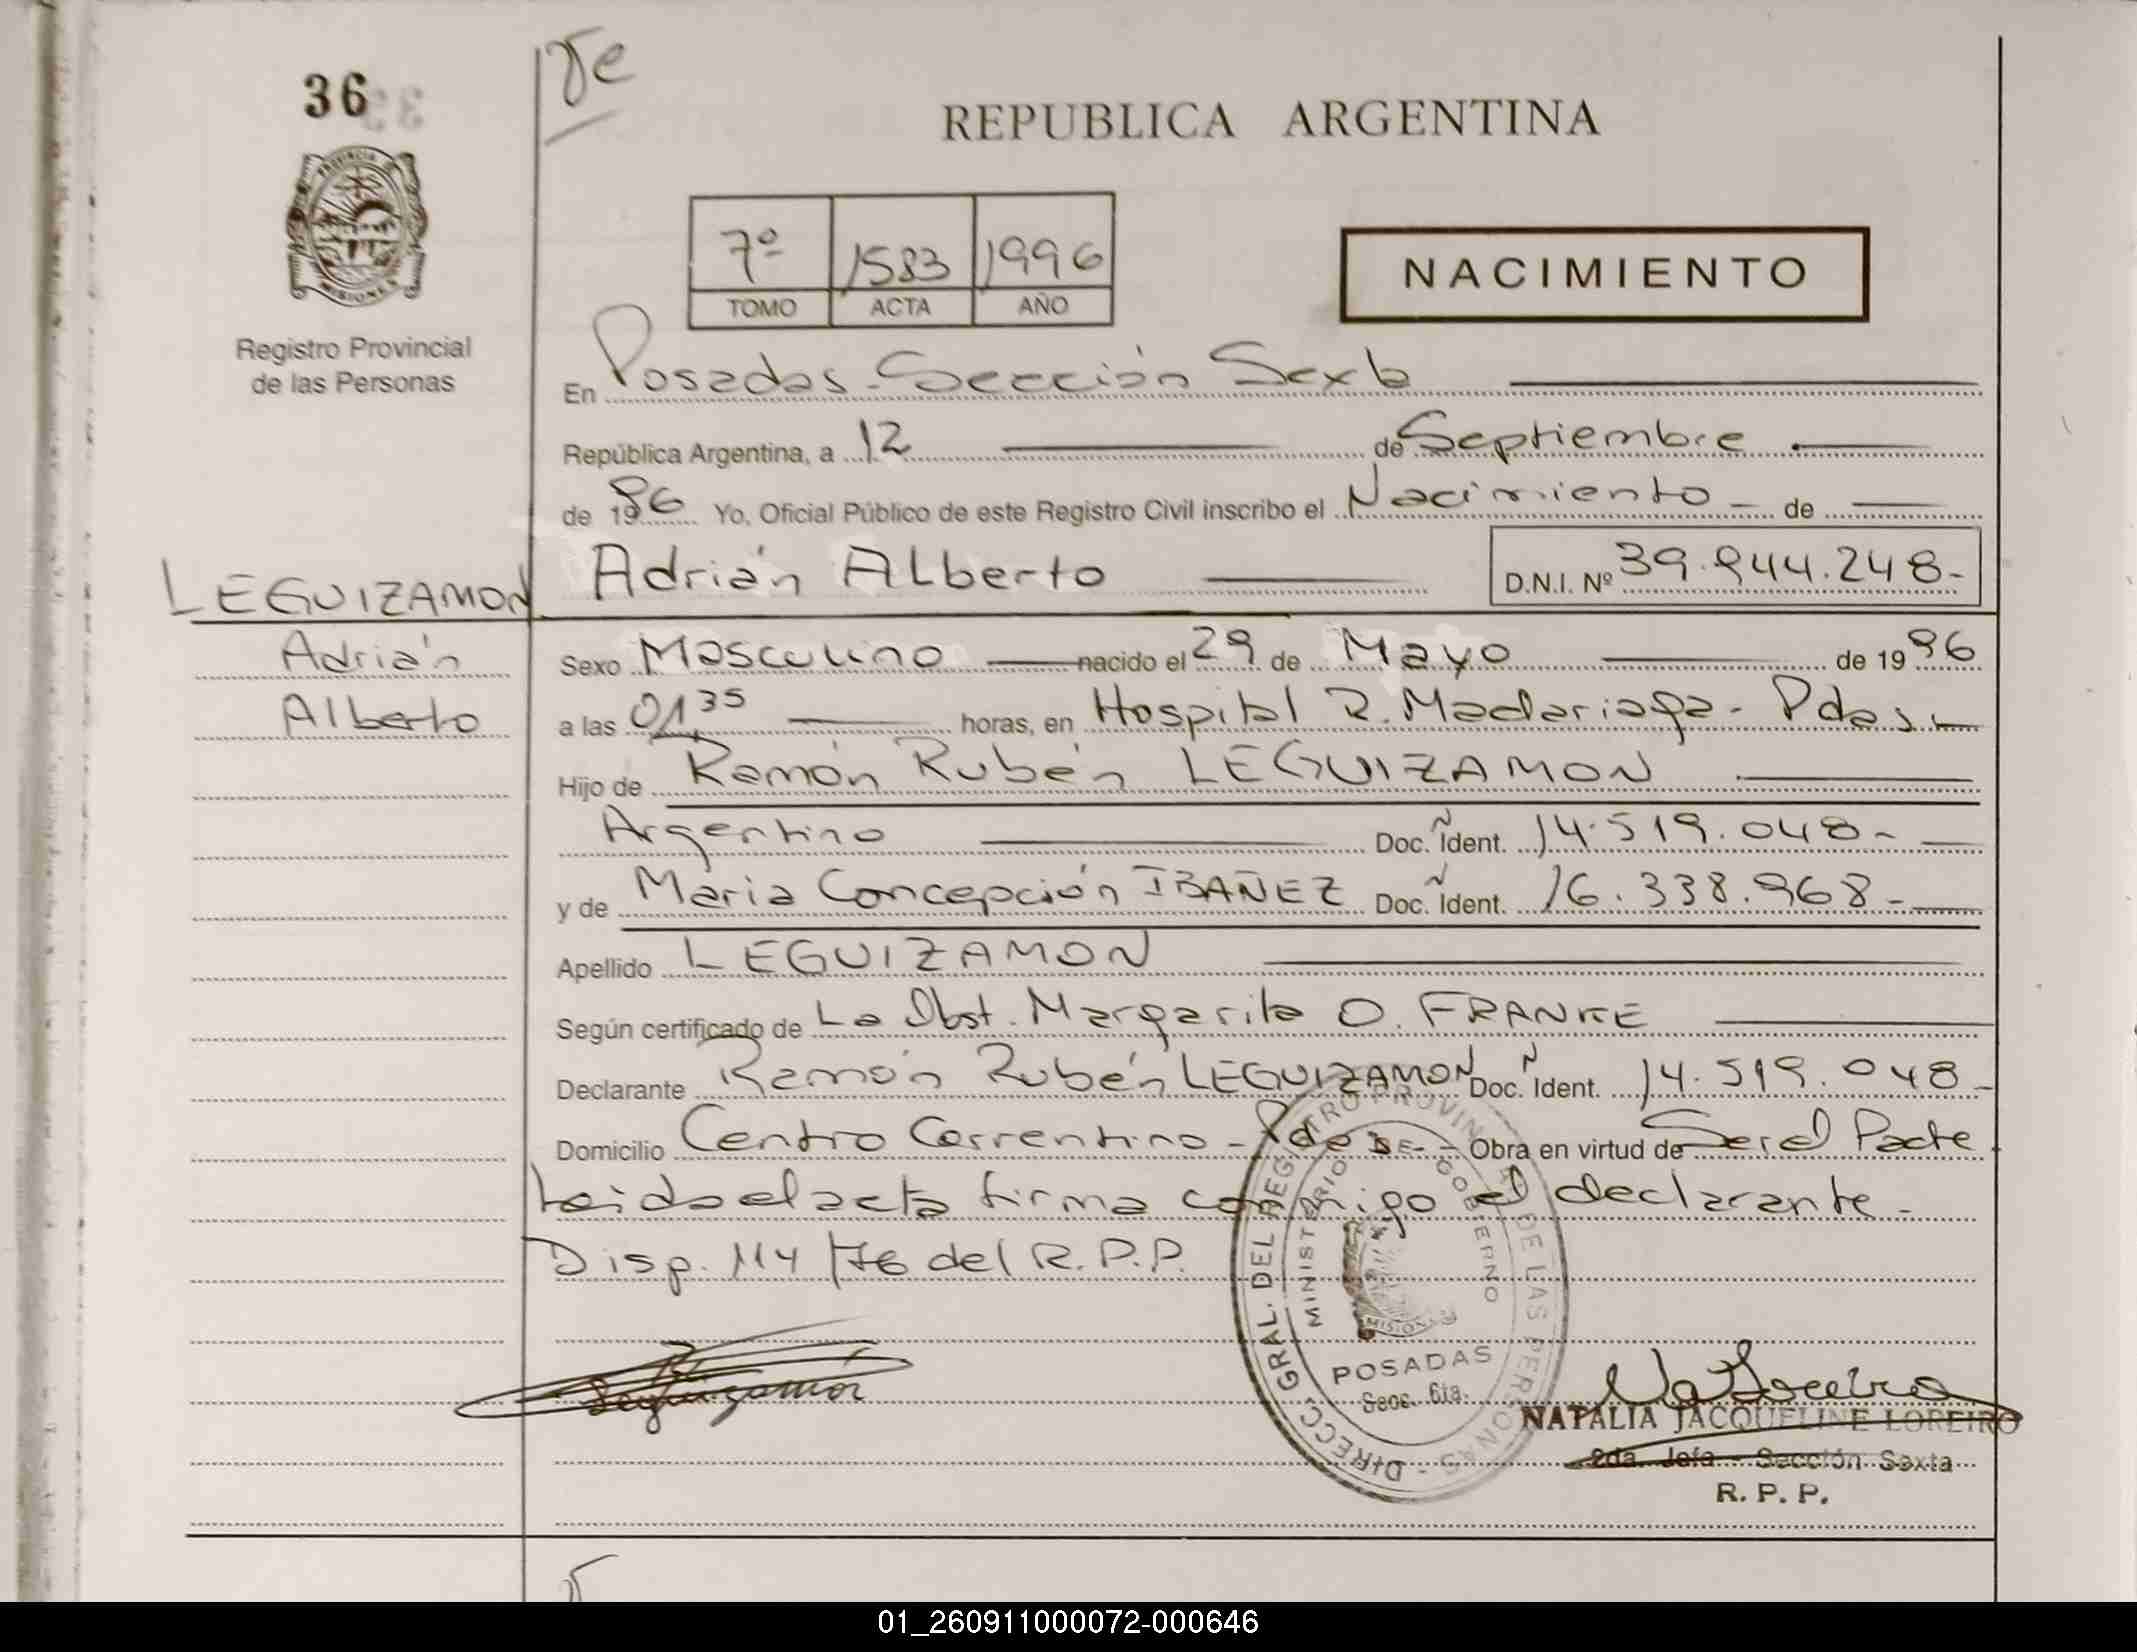 36
Te
PROVINCIA
MISIONES
Registro Provincial
de las Personas
REPUBLICA ARGENTINA
7º 1583 1996
TOMO ACTA AÑO
NACIMIENTO
En Posadas - Sección Sexta
República Argentina, a 12 de Septiembre
de 1996 Yo, Oficial Público de este Registro Civil inscribo el Nacimiento - de
Adrián Alberto D.N.I. Nº 39.944.248-
LEGUIZAMON
Adrián
Alberto
Sexo Masculino nacido el 29 de Mayo de 1996
a las 01,35 horas, en Hospital R. Madariaga - Pdas.-
Hijo de Ramón Rubén LEGUIZAMON
Argentino Doc. Ident. 14.519.048-
y de María Concepción IBAÑEZ Doc. Ident. 16.338.968-
Apellido LEGUIZAMON
Según certificado de La Obst. Margarita O. FRANKE
Declarante Ramón Rubén LEGUIZAMON Doc. Ident. 14.519.048-
Domicilio Centro Correntino - Pdas.- Obra en virtud de Ser el Padre
Leida el acta firma conmigo el declarante -
Disp. 114/76 del R.P.P.
DIRECC. GRAL. DEL REGISTRO PROVINCIAL DE LAS PERSONAS
MINISTERIO DE GOBIERNO
MISIONES
POSADAS
Secc. 6ta.
Leguizamon
NATALIA JACQUELINE LOREIRO
2da. Jefa - Sección Sexta
R. P. P.
01_260911000072-000646